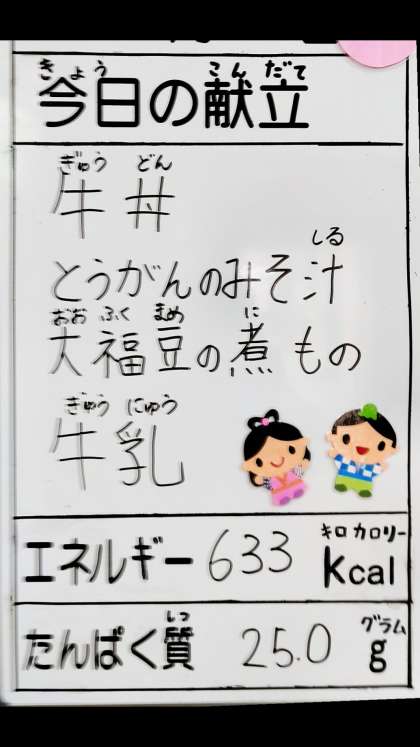 きょう こんだて
今日の献立
ぎゅう どん
牛丼
しる
とうがんのみそ汁
おお ふく まめ に
大福豆の煮もの
ぎゅう にゅう
牛乳
キロカロリー
エネルギー 633 kcal
しつ グラム
たんぱく質 25.0 g